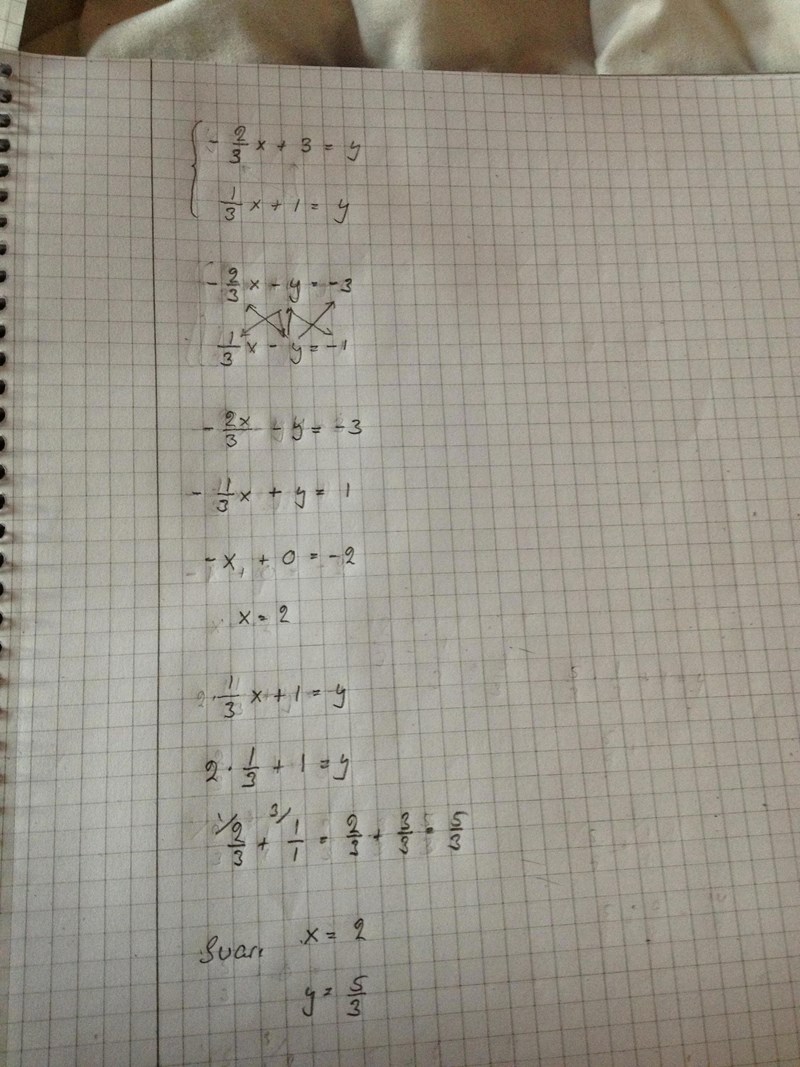 - 2/3 x + 3 = y
1/3 x + 1 = y
- 2/3 x - y = -3
1/3 x - y = -1
- 2x/3 - y = -3
- 1/3 x + y = 1
- x + 0 = -2
x = 2
1/3 x + 1 = y
2 · 1/3 + 1 = y
2/3 + 1/1 = 2/3 + 3/3 = 5/3
Svar: x = 2
y = 5/3